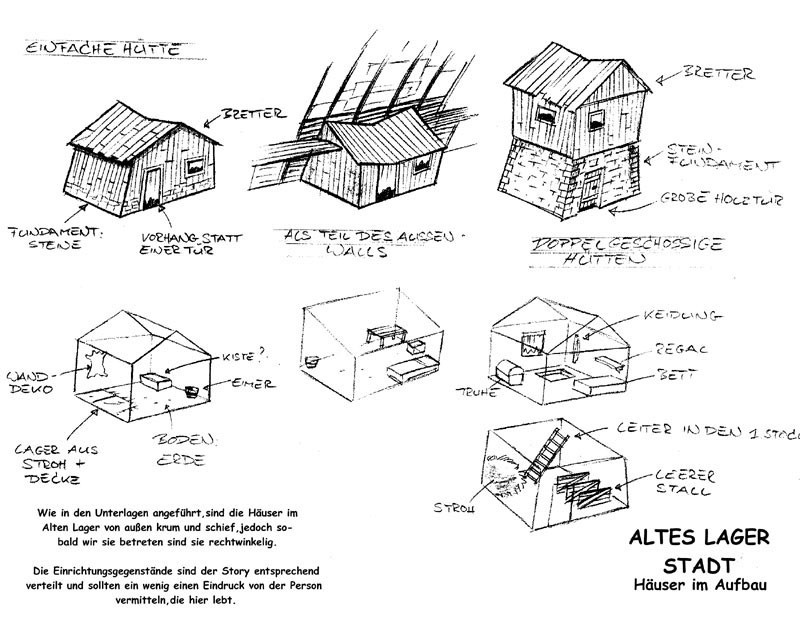 EINFACHE HÜTTE
BRETTER
BRETTER
STEIN-
FUNDAMENT
GROBE HOLZTÜR
FUNDAMENT:
STEINE
VORHANG STATT
EINER TÜR
ALS TEIL DES AUSSEN-
WALLS
DOPPELGESCHOSSIGE
HÜTTEN
WAND-
DEKO
KISTE?
EIMER
LAGER AUS
STROH +
DECKE
BODEN:
ERDE
KEIDLING
REGAL
BETT
TRUHE
LEITER IN DEN 1 STOCK
LEERER
STALL
STROH
Wie in den Unterlagen angeführt,sind die Häuser im
Alten Lager von außen krum und schief,jedoch so-
bald wir sie betreten sind sie rechtwinkelig.
Die Einrichtungsgegenstände sind der Story entsprechend
verteilt und sollten ein wenig einen Eindruck von der Person
vermitteln,die hier lebt.
ALTES LAGER
STADT
Häuser im Aufbau